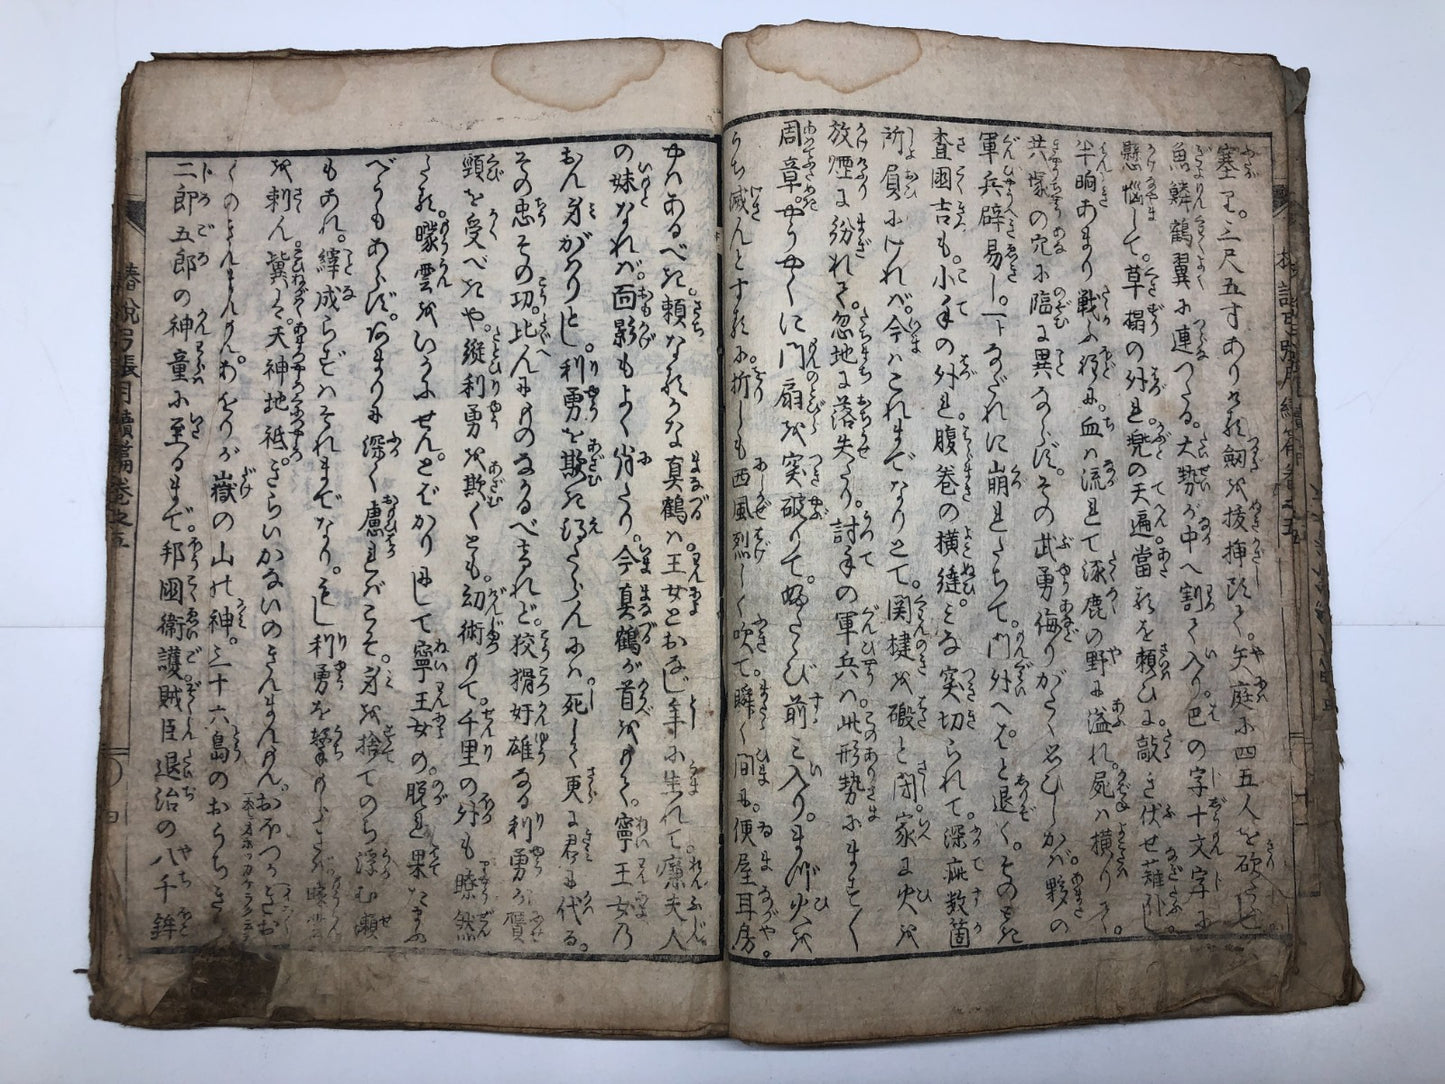 塞り。三尺五寸ありける劔を抜挿頭て。矢庭に四五人を砍たふし
魚鱗鶴翼に連つたる。大勢が中へ割て入り。巴の字十文字に
懸悩して。草摺の外れ兜の天邊當るを頼ひに敲き伏せ薙倒し
半晌あまり戦ふ程に血は流れて涿鹿の野に溢れ。屍は横りて。
共塚の穴に臨に異ならず。その武勇侮りがたく思ひしかば夥の
軍兵辟易し一トなだれに崩れたちて。門外へばと退く。そのとき
査國吉も。小手の外れ腹巻の横縫。みな突切られて。深痍数箇
所負にければ。今はこれまでなりとて。関楗を礑と閉。家に火を
放煙に紛れて。忽地に落失たり。討手の軍兵は。此形勢にますく
周章。やうやくに門扇を突破りて。ふたゝび前ミ入り。まづ火を
うち滅んとするに折しも西風烈しく吹て。瞬く間に。便屋耳房
やはあるべき。頼なるかな真鶴は。王女とおなじ年に生れて。廉夫人
の妹なれば。面影もよく肖たり。今真鶴が首をもて。寧王女の
おん身がはりとし。利勇を欺き得たらんには。死して更に君に代る。
その忠その功。比んにものなかるべけれど。狡猾奸雄なる利勇が贋
頸を受べきや。縦利勇を欺くとも。幻術もて。千里の外も瞭然
たる。矇雲をいかにせん。とばかりにして寧王女の。脱れ果たまふ
べうもあらず。なまりに深く慮ればこそ。身を捨てのち浮む瀬
もあれ。縡成らずはそれまでなり。もし利勇を撃もらさば矇雲
を刺ん。冀くは天神地祇。きらいかないのきんまんもん。おぼつかぎお
くのきんまんもん。あをりが嶽の山の神。三十六島のおうちきう。
二郎五郎の神童に至るまで。邦國衛護賊臣退治の八千鉾
椿説弓張月續篇巻之五
四